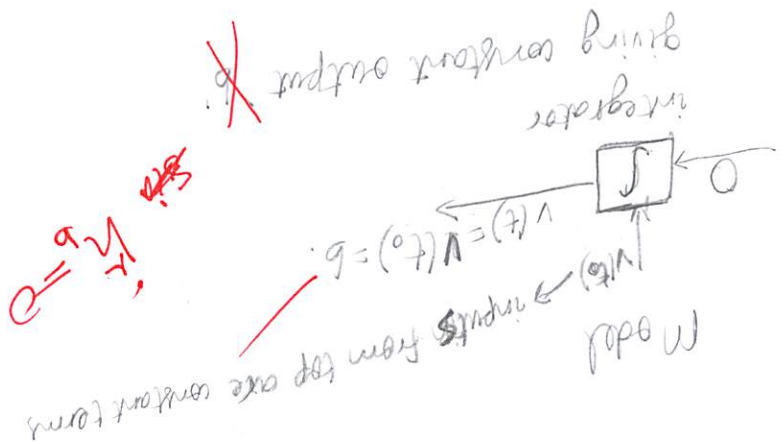 Model
inputs from top are constant terms
v(t₀)
0 ∫ v(t) = v(t₀) = b.
integrator
giving constant output b.